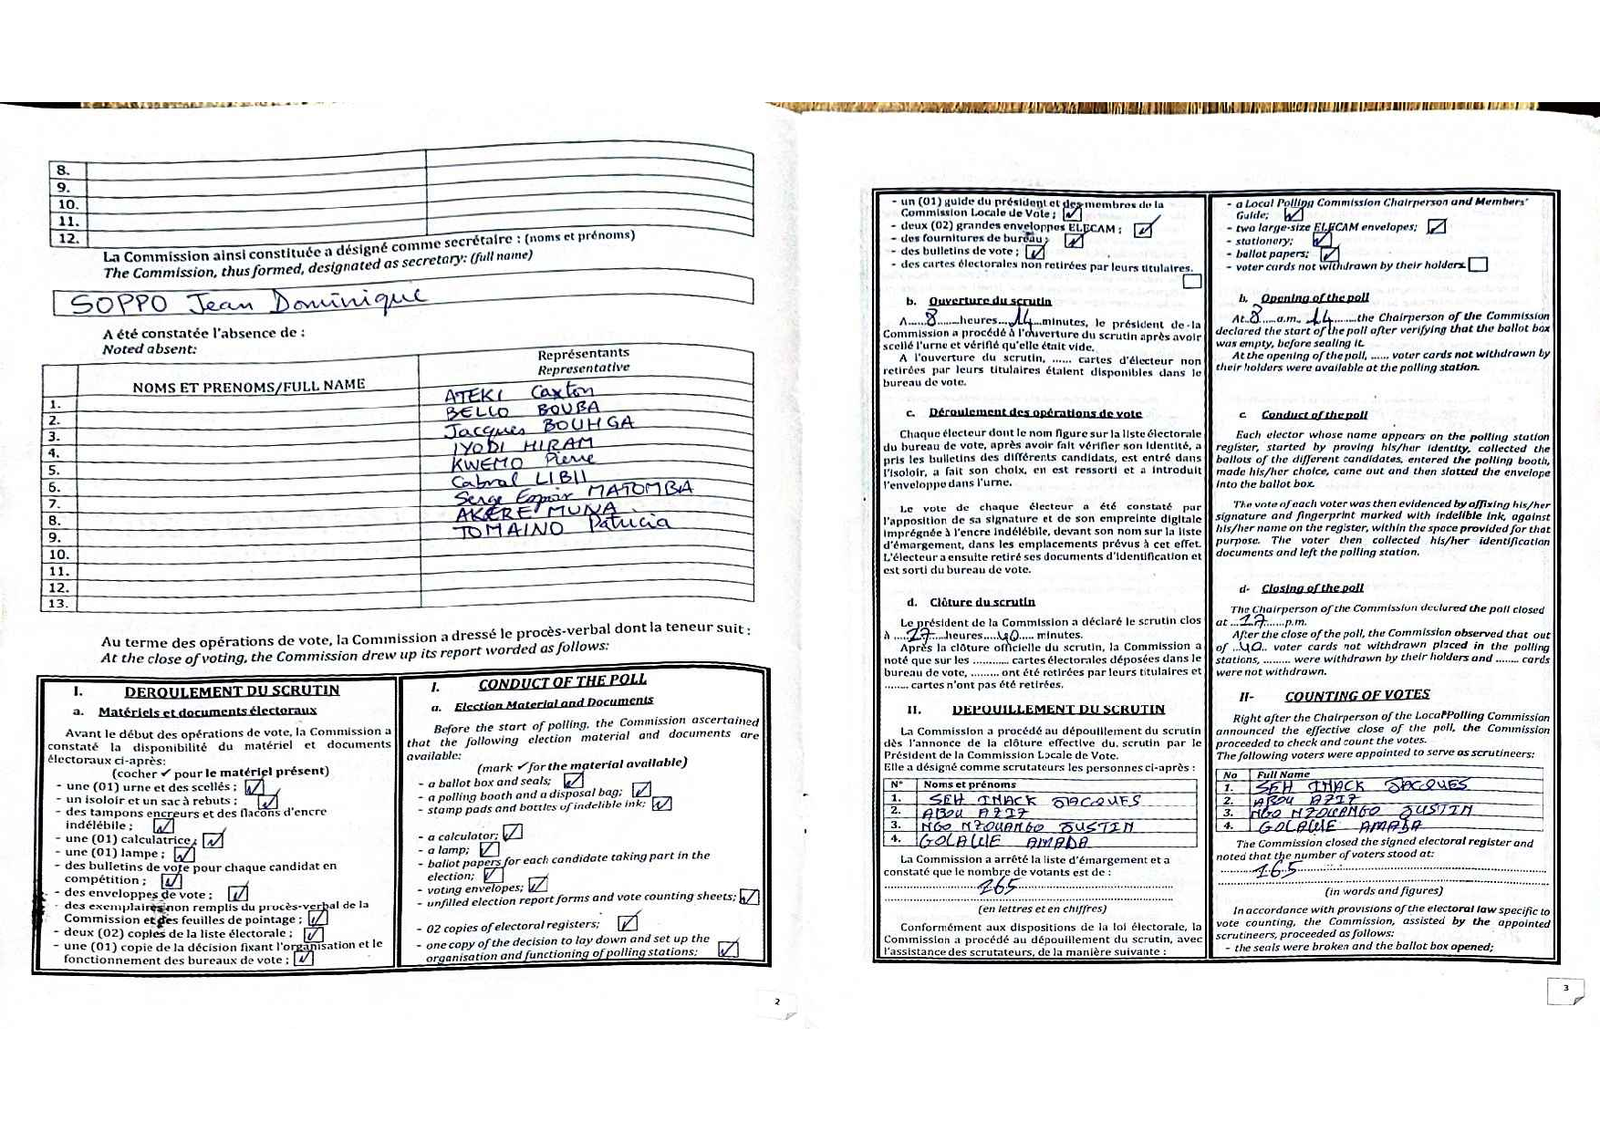 8.
9.
10.
11.
12.
La Commission ainsi constituée a désigné comme secrétaire : (noms et prénoms)
The Commission, thus formed, designated as secretary: (full name)
SOPPO Jean Dominique
A été constatée l'absence de :
Noted absent:
NOMS ET PRENOMS/FULL NAME
Représentants
Representative
1. ATEKI Caxton
2. BELLO BOUBA
3. Jacques BOUHGA
4. IYODI HIRAM
5. KWEMO Pierre
6. Cabral LIBII
7. Serge Espoir MATOMBA
8. AKERE MUNA
9. TOMAINO Patricia
10.
11.
12.
13.
Au terme des opérations de vote, la Commission a dressé le procès-verbal dont la teneur suit :
At the close of voting, the Commission drew up its report worded as follows:
I. DEROULEMENT DU SCRUTIN
a. Matériels et documents électoraux
Avant le début des opérations de vote, la Commission a
constaté la disponibilité du matériel et documents
électoraux ci-après:
(cocher ✓ pour le matériel présent)
- une (01) urne et des scellés ; ☑
- un isoloir et un sac à rebuts ; ☑
- des tampons encreurs et des flacons d'encre
indélébile ; ☑
- une (01) calculatrice ; ☑
- une (01) lampe ; ☑
- des bulletins de vote pour chaque candidat en
compétition ; ☑
- des enveloppes de vote ; ☑
- des exemplaires non remplis du procès-verbal de la
Commission et des feuilles de pointage ; ☑
- deux (02) copies de la liste électorale ; ☑
- une (01) copie de la décision fixant l'organisation et le
fonctionnement des bureaux de vote ; ☑
I. CONDUCT OF THE POLL
a. Election Material and Documents
Before the start of polling, the Commission ascertained
that the following election material and documents are
available:
(mark ✓ for the material available)
- a ballot box and seals; ☑
- a polling booth and a disposal bag; ☑
- stamp pads and bottles of indelible ink; ☑
- a calculator; ☑
- a lamp; ☑
- ballot papers for each candidate taking part in the
election; ☑
- voting envelopes; ☑
- unfilled election report forms and vote counting sheets; ☑
- 02 copies of electoral registers; ☑
- one copy of the decision to lay down and set up the
organisation and functioning of polling stations; ☑
2
- un (01) guide du président et des membres de la
Commission Locale de Vote ; ☑
- deux (02) grandes enveloppes ELECAM ; ☑
- des fournitures de bureau ; ☑
- des bulletins de vote ; ☑
- des cartes électorales non retirées par leurs titulaires. ☐
b. Ouverture du scrutin
A....8.......heures....14....minutes, le président de la
Commission a procédé à l'ouverture du scrutin après avoir
scellé l'urne et vérifié qu'elle était vide.
A l'ouverture du scrutin, ...... cartes d'électeur non
retirées par leurs titulaires étaient disponibles dans le
bureau de vote.
c. Déroulement des opérations de vote
Chaque électeur dont le nom figure sur la liste électorale
du bureau de vote, après avoir fait vérifier son identité, a
pris les bulletins des différents candidats, est entré dans
l'isoloir, a fait son choix, en est ressorti et a introduit
l'enveloppe dans l'urne.
Le vote de chaque électeur a été constaté par
l'apposition de sa signature et de son empreinte digitale
imprégnée à l'encre indélébile, devant son nom sur la liste
d'émargement, dans les emplacements prévus à cet effet.
L'électeur a ensuite retiré ses documents d'identification et
est sorti du bureau de vote.
d. Clôture du scrutin
Le président de la Commission a déclaré le scrutin clos
à ....17....heures.....40..... minutes.
Après la clôture officielle du scrutin, la Commission a
noté que sur les ........... cartes électorales déposées dans le
bureau de vote, ......... ont été retirées par leurs titulaires et
........ cartes n'ont pas été retirées.
II. DEPOUILLEMENT DU SCRUTIN
La Commission a procédé au dépouillement du scrutin
dès l'annonce de la clôture effective du scrutin par le
Président de la Commission Locale de Vote.
Elle a désigné comme scrutateurs les personnes ci-après :
N° Noms et prénoms
1. SEH INACK JACQUES
2. ABOU AZIZ
3. NGO NZOUANGO JUSTIN
4. GOLAWE AMADA
La Commission a arrêté la liste d'émargement et a
constaté que le nombre de votants est de :
265
(en lettres et en chiffres)
Conformément aux dispositions de la loi électorale, la
Commission a procédé au dépouillement du scrutin, avec
l'assistance des scrutateurs, de la manière suivante :
- a Local Polling Commission Chairperson and Members'
Guide; ☑
- two large-size ELECAM envelopes; ☑
- stationery; ☑
- ballot papers; ☑
- voter cards not withdrawn by their holders. ☐
b. Opening of the poll
At..8.....a.m., 14.......the Chairperson of the Commission
declared the start of the poll after verifying that the ballot box
was empty, before sealing it.
At the opening of the poll, ...... voter cards not withdrawn by
their holders were available at the polling station.
c. Conduct of the poll
Each elector whose name appears on the polling station
register, started by proving his/her identity, collected the
ballots of the different candidates, entered the polling booth,
made his/her choice, came out and then slotted the envelope
into the ballot box.
The vote of each voter was then evidenced by affixing his/her
signature and fingerprint marked with indelible ink, against
his/her name on the register, within the space provided for that
purpose. The voter then collected his/her identification
documents and left the polling station.
d- Closing of the poll
The Chairperson of the Commission declared the poll closed
at ...17.....p.m.
After the close of the poll, the Commission observed that out
of ..40.. voter cards not withdrawn placed in the polling
stations, ......... were withdrawn by their holders and ....... cards
were not withdrawn.
II- COUNTING OF VOTES
Right after the Chairperson of the Local Polling Commission
announced the effective close of the poll, the Commission
proceeded to check and count the votes.
The following voters were appointed to serve as scrutineers:
No Full Name
1. SEH INACK JACQUES
2. ABOU AZIZ
3. NGO NZOUANGO JUSTIN
4. GOLAWE AMADA
The Commission closed the signed electoral register and
noted that the number of voters stood at:
265
(in words and figures)
In accordance with provisions of the electoral law specific to
vote counting, the Commission, assisted by the appointed
scrutineers, proceeded as follows:
- the seals were broken and the ballot box opened;
3